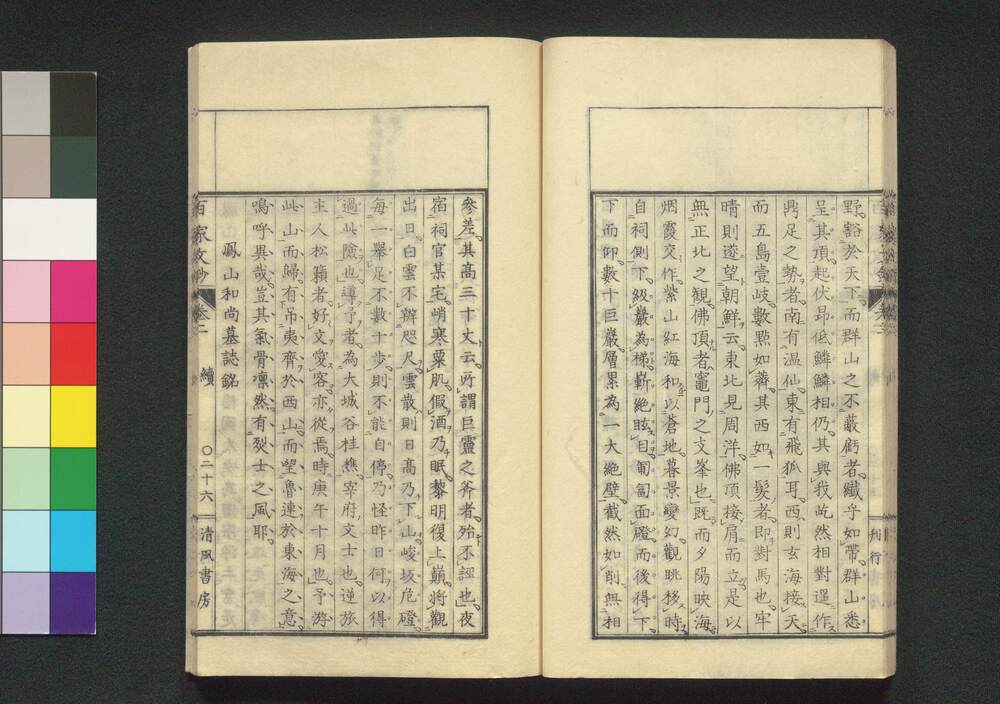 野豁於天下而群山之不蔽虧者纖乎如帶群山悉
呈其頂起伏昂低鱗鱗相仍其與我屹然相對逞作
鼎足之勢者南有温仙東有飛狐耳西則玄海接天
而五島壹岐數點如薺其西如一髮者即對馬也牢
晴則遂望朝鮮云東北見周洋佛頂接肩而立是以
無正北之觀佛頂者竈門之支峯也既而夕陽映海
烟霞交作紫山紅海和以蒼地暮景變幻觀眺移時
自祠側下級巖為梯嶄絶眩目匍匐面磴而後得下
下而仰數十巨巖層累為一大絶壁截然如削無相
刊行
參差其高三十丈云所謂巨靈之斧者殆不誣也夜
宿祠官某宅峭寒粟肌假酒乃眠黎明復上巓將觀
出日白雲不辨咫尺雲散則日高乃下山峻坂危磴
每一舉足不數十步則不能自停乃怪昨日何以得
過此險也導予者為大城谷桂樵宰府文士也逆旅
主人松籟者好文愛客亦從焉時庚午十月也予游
此山而歸有吊夷齊於西山而望魯連於東海之意
嗚呼異哉豈其氣骨凛然有烈士之風耶
鳳山和尚墓誌銘
百家文鈔 卷二 續 〇二十六 清風書房